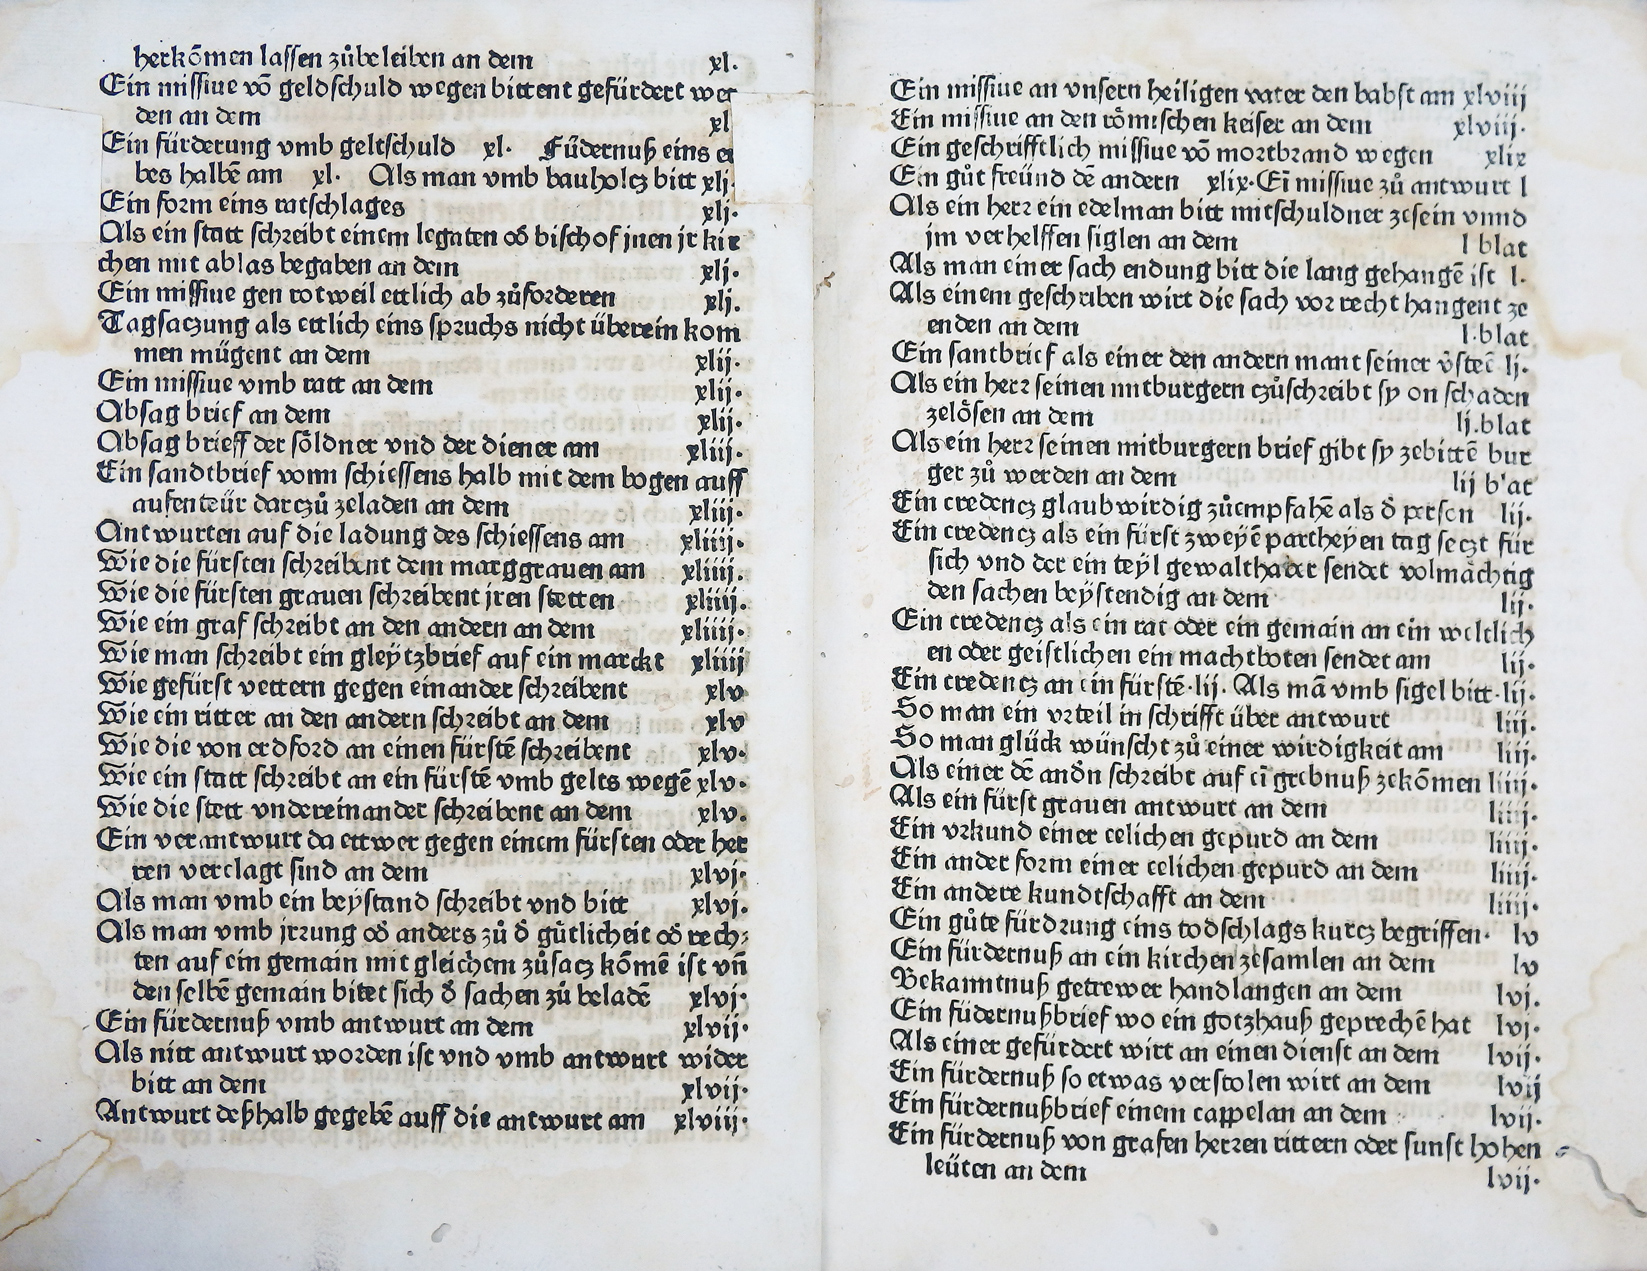 herkõmen lassen zůbeleiben an dem xl.
Ein missiue võ geldschuld wegen bittent gefürdert wer
den an dem xl
Ein fürderung vmb geltschuld xl. Füdernuß eins er
bes halbẽ am xl. Als man vmb bauholcz bitt xlj.
Ein form eins ratschlages xlj.
Als ein statt schreibt einem legaten oď bischof jnen jr kir
chen mit ablas begaben an dem xlj.
Ein missiue gen rotweil ettlich ab zůforderen xlj.
Tagsaczung als ettlich eins spruchs nicht überein kom
men mügent an dem xlij.
Ein missiue vmb ratt an dem xlij.
Absag brief an dem xlij.
Absag brieff der söldner vnd der diener am xliij.
Ein sandtbrief vonn schiessens halb mit dem bogen auff
aufenteür darczů zeladen an dem xliij.
Antwurten auf die ladung des schiessens am xliiij.
Wie die fürsten schreibent dem marggrauen am xliiij.
Wie die fürsten grauen schreibent jren stetten xliiij.
Wie ein graf schreibt an den andern an dem xliiij.
Wie man schreibt ein gleytzbrief auf ein marckt xliiij
Wie gefürst vettern gegen einander schreibent xlv
Wie ein ritter an den andern schreibt an dem xlv
Wie die von erdford an einen fürstẽ schreibent xlv.
Wie ein statt schreibt an ein fürstẽ vmb gelts wegẽ xlv.
Wie die stett vndereinander schreibent an dem xlv.
Ein verantwurt da ettwer gegen einem fürsten oder her
ren verclagt sind an dem xlvj.
Als man vmb ein beystand schreibt vnd bitt xlvj.
Als man vmb jrrung oď anders zů ď gütlicheit oď rech⸗
ten auf ein gemain mit gleichem zůsacz kõmẽ ist vñ
den selbẽ gemain bitet sich ď sachen zů beladẽ xlvj.
Ein fürdernuß vmb antwurt an dem xlvij.
Als nitt antwurt worden ist vnd vmb antwurt wider
bitt an dem xlvij.
Antwurt deßhalb gegebẽ auff die antwurt am xlviij.
Ein missiue an vnsern heiligen vater den babst am xlviij
Ein missiue an den römischen keiser an dem xlviij.
Ein geschrifftlich missiue võ mortbrand wegen xlix
Ein gůt freünd dẽ andern xlix. Eĩ missiue zů antwurt l
Als ein herr ein edelman bitt mitschuldner zesein vnnd
jm verhelffen siglen an dem l blat
Als man einer sach endung bitt die lang gehangẽ ist l.
Als einem geschriben wirt die sach vor recht hangent ze
enden an dem l.blat
Ein santbrief als einer den andern mant seiner v̊steẽ lj.
Als ein herr seinen mitburgern czůschreibt sy on schaden
zelösen an dem lj.blat
Als ein herr seinen mitburgern brief gibt sy zebittẽ bur
ger zů werden an dem lij b'at
Ein credencz glaubwirdig zůempfahẽ als ď person lij.
Ein credencz als ein fürst zweyẽ partheyen tag seczt für
sich vnd der ein teyl gewalthaber sendet volmächtig
den sachen beystendig an dem lij.
Ein credencz als ein rat oder ein gemain an ein weltlich
en oder geistlichen ein machtboten sendet am lij.
Ein credencz an ein fürstẽ.lij. Als mã vmb sigel bitt.lij.
So man ein vrteil in schrifft über antwurt liij.
So man glück wünscht zů einer wirdigkeit am liij.
Als einer dẽ andn̄ schreibt auf eĩ grebnuß zekõmen liiij.
Als ein fürst grauen antwurt an dem liiij.
Ein vrkund einer eelichen gepurd an dem liiij.
Ein ander form einer eelichen gepurd an dem liiij.
Ein andere kundtschafft an dem liiij.
Ein gůte fürdrung eins todschlags kurcz begriffen. lv
Ein fürdernuß an ein kirchen zesamlen an dem lv
Bekanntnuß getrewer handlangen an dem lvj.
Ein füdernußbrief wo ein gotzhauß geprechẽ hat lvj.
Als einer gefürdert wirt an einen dienst an dem lvij.
Ein fürdernuß so etwas verstolen wirt an dem lvij
Ein fürdernußbrief einem cappelan an dem lvij.
Ein fürdernuß von grafen herren rittern oder sunst hohen
leüten an dem lvij.